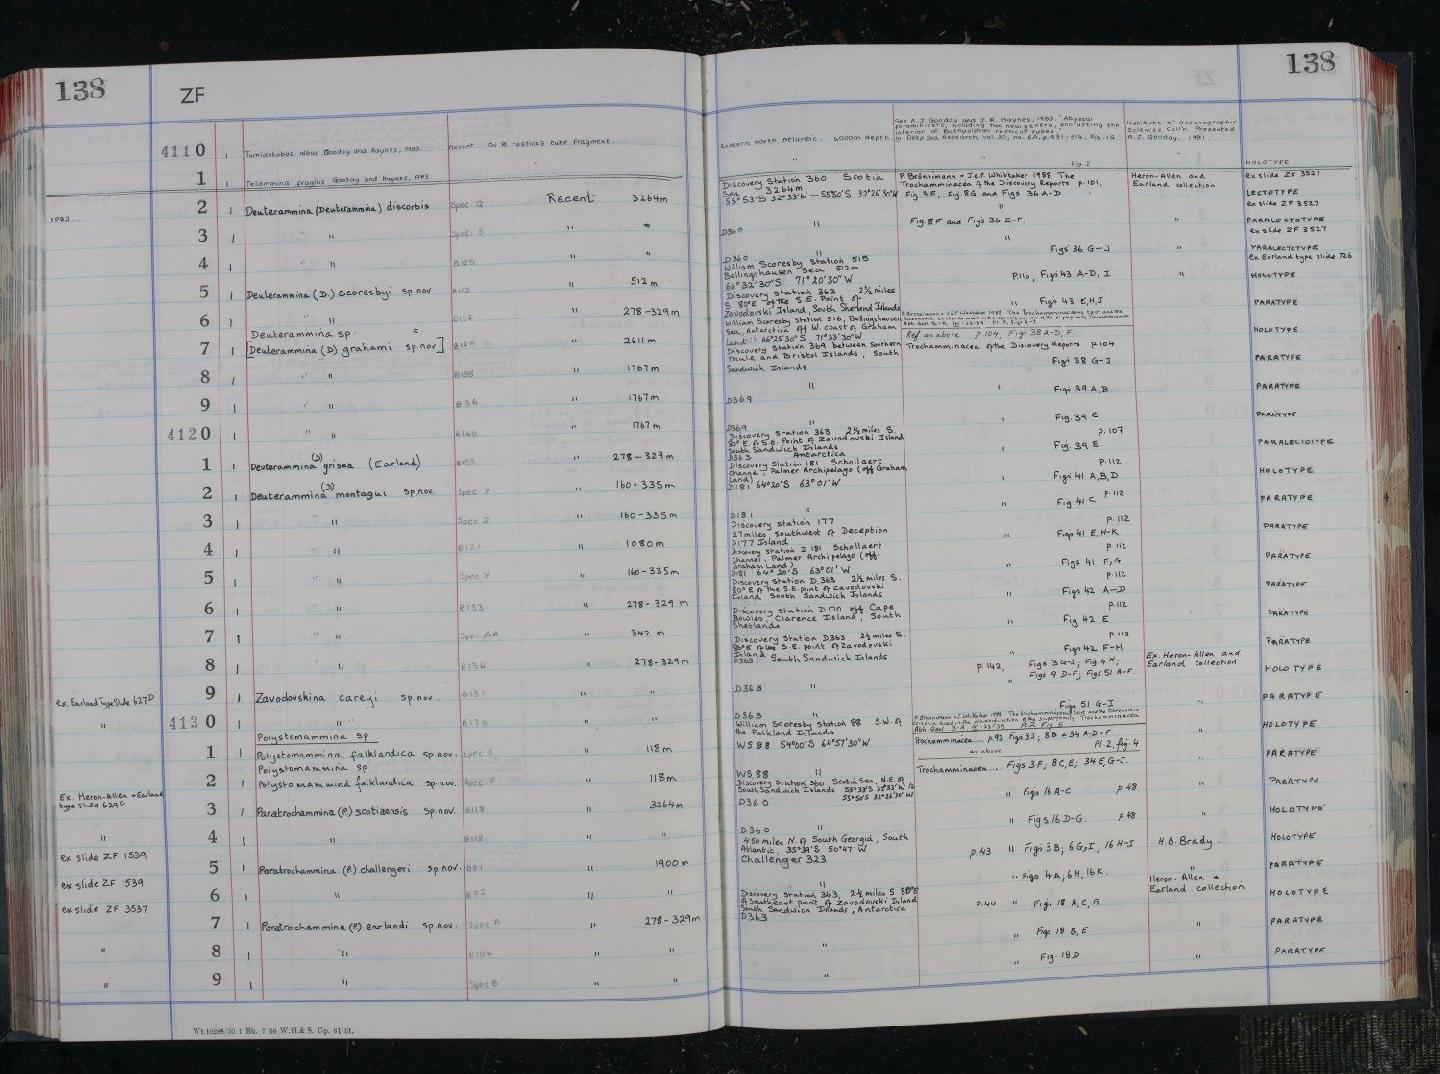 138
ZF
4110 1 Tumidotubus albus Gooday and Haynes, 1983. Recent
1 1 Telammina fragilis Gooday and Haynes, 1983
1983
2 1 Deuterammina (Deuterammina) discorbis Spec. Q Recent 3264m
3 1 " " Spec. S " "
4 1 " " B125 " "
5 1 Deuterammina (D.) scoresbyi sp.nov B112 " 512 m
6 1 " " " 278-329m
Deuterammina sp.
7 1 [Deuterammina (D) grahami sp.nov] B120 " 2611m
8 1 " " " 1767m
9 1 " " B36 " 1767m
4120 1 " " B140 " 1767m
1 1 Deuterammina (D) grisea (Earland) " 278-329m
2 1 Deuterammina (D) montagui sp.nov. Spec Y " 160-335m
3 1 " " Spec Z " 160-335m
4 1 " " B121 " 1080m
5 1 " " Spec X " 160-335m
6 1 " " B133 " 278-329 m
7 1 " " Spec AA " 342 m
8 1 " " B134 " 278-329m
ex. Earland Type slide 627D
9 1 Zavodovskina careyi sp.nov. B131 " "
" 4130 1 " B130 " "
Polystomammina sp
1 1 Polystomammina falklandica sp.nov. Spec E " 118m
Polystomammina sp
2 1 Polystomammina falklandica sp.nov. Spec F " 118m
Ex. Heron-Allen + Earland
type slide 629C
3 1 Paratrochammina (P.) scotiaensis sp.nov. B118 " 3264m
" 4 1 " B119 " "
ex slide ZF 1539
5 1 Paratrochammina (P.) challengeri sp.nov. B91 " 1900m
ex slide ZF 1539
6 1 " B92 " "
ex slide ZF 3537
7 1 Paratrochammina (P.) earlandi sp.nov. Spec A " 278-329m
" 8 1 " B104 " "
" 9 1 " Spec B " "
Wt.10288/50 1 Bk. 7/46 W.H.& S. Gp. 61/81.
138
See A.J. Gooday and J.R. Haynes, 1983. "Abyssal
foraminifers, including two new genera, encrusting the
interior of Bathysiphon rusticus tubes."
Deep Sea Research, vol. 30, no. 6A, p.591-614, Fig. 1G
Eastern North Atlantic. 4000m depth.
Institute of Oceanographic
Sciences Coll'n. Presented
A.J. Gooday, 1981
HOLOTYPE
" " Fig. 2 "
ex slide ZF 3521
Discovery Station 360 Scotia
Sea 3264m
P. Brönnimann + J.E.P. Whittaker 1988 The
Trochamminacea of the Discovery Reports p.101,
Fig. 3E, Fig. 8G and Figs 36 A-D
Heron-Allen and
Earland collection
LECTOTYPE
ex slide ZF 3527
D360 " Fig. 8F and Figs 36 E-F. "
PARALECTOTYPE
ex slide ZF 3527
D360 " " Figs 36 G-J "
PARALECTOTYPE
ex Earland type slide 726
William Scoresby Station 515
Bellingshausen Sea 512m
66°32'30"S 71°20'30"W
P.110, Figs 43 A-D, I "
HOLOTYPE
Discovery Station 363 2½ miles
S 80°E of the S.E. Point of
Zavodovski Island, South Shetland Islands
" Figs 43 E,H,J
PARATYPE
William Scoresby Station 516, Bellingshausen
Sea, Antarctica of W. coast of Graham
Land 66°25'30"S 71°33'30"W
Ref as above p.104, Figs 38 A-D, F.
HOLOTYPE
Discovery Station 369 between Southern
Thule and Bristol Islands, South
Sandwich Islands
Trochamminacea of the Discovery Reports p.104
Figs 38 G-J
PARATYPE
D369 " Figs 39 A,B
PARATYPE
D369 " Fig. 39 C
PARATYPE
Discovery Station 363 2½ miles S.
80°E of S.E. Point of Zavodovski Island
South Sandwich Islands
D363 Antarctica
p.107
Fig. 39 E
PARALECTOTYPE
Discovery Station 181 Schollaert
Channel, Palmer Archipelago (off Graham
Land)
D181 64°20'S 63°01'W
p.112
Figs 41 A,B,D
HOLOTYPE
D181 " Fig 41 C p.112
PARATYPE
Discovery station 177
27 miles Southwest of Deception
D177 Island
p.112
Figs 41 E,H-K
PARATYPE
Discovery Station 181 Schollaert
Channel, Palmer Archipelago (off
Graham Land)
D181 64°20'S 63°01'W
p.112
Figs 41 F,G
PARATYPE
Discovery Station D.363 2½ miles S.
80°E of the S.E. point of Zavodovski
Island South Sandwich Islands
p.112
Figs 42 A-D
PARATYPE
Discovery Station off Cape
Bowles, Clarence Island, South
Shetlands
p.112
Fig 42 E
PARATYPE
Discovery Station D363 2½ miles S.
80°E of the S.E. Point of Zavodovski
Island
D363 South Sandwich Islands
p.112
Figs 42 F-H
PARATYPE
p.142, Figs 3 G-J; Fig 4 N;
Figs 9 D-F; Figs 51 A-F.
Ex. Heron-Allen and
Earland collection
HOLOTYPE
D363 " " Figs 51 G-I "
PARATYPE
D363 "
William Scoresby Station 88 S.W. of
the Falkland Islands
WS 88 54°00'S 64°57'30"W
Trochamminacea.... p.93 Figs 3J; 8B + 34 A-D+F
HOLOTYPE
as above Pl. 2, fig. 4
WS 88 "
Trochamminacea.... Figs 3F; 8C,E; 34E,G-I.
PARATYPE
Discovery Station 360 Scotia Sea, N.E. of
South Sandwich Islands
D360
" Figs 16 A-C p.48
HOLOTYPE
D360 " " Figs 16 D-G. p.48
450 miles N. of South Georgia, South
Atlantic, 35°39'S 50°47'W
Challenger 323
p.43 " Figs 3B; 6G,I, 16 H-I
H.B. Brady.
HOLOTYPE
" " Figs 4A; 6H, 16K. "
PARATYPE
Discovery Station 363, 2½ miles S 80°E
of Southeast point of Zavodovski Island
South Sandwich Islands, Antarctica
D363
p.44 " Figs. 18 A, C, G
Heron-Allen +
Earland collection
HOLOTYPE
" " Figs. 18 B, E "
PARATYPE
" " Fig. 18D "
PARATYPE